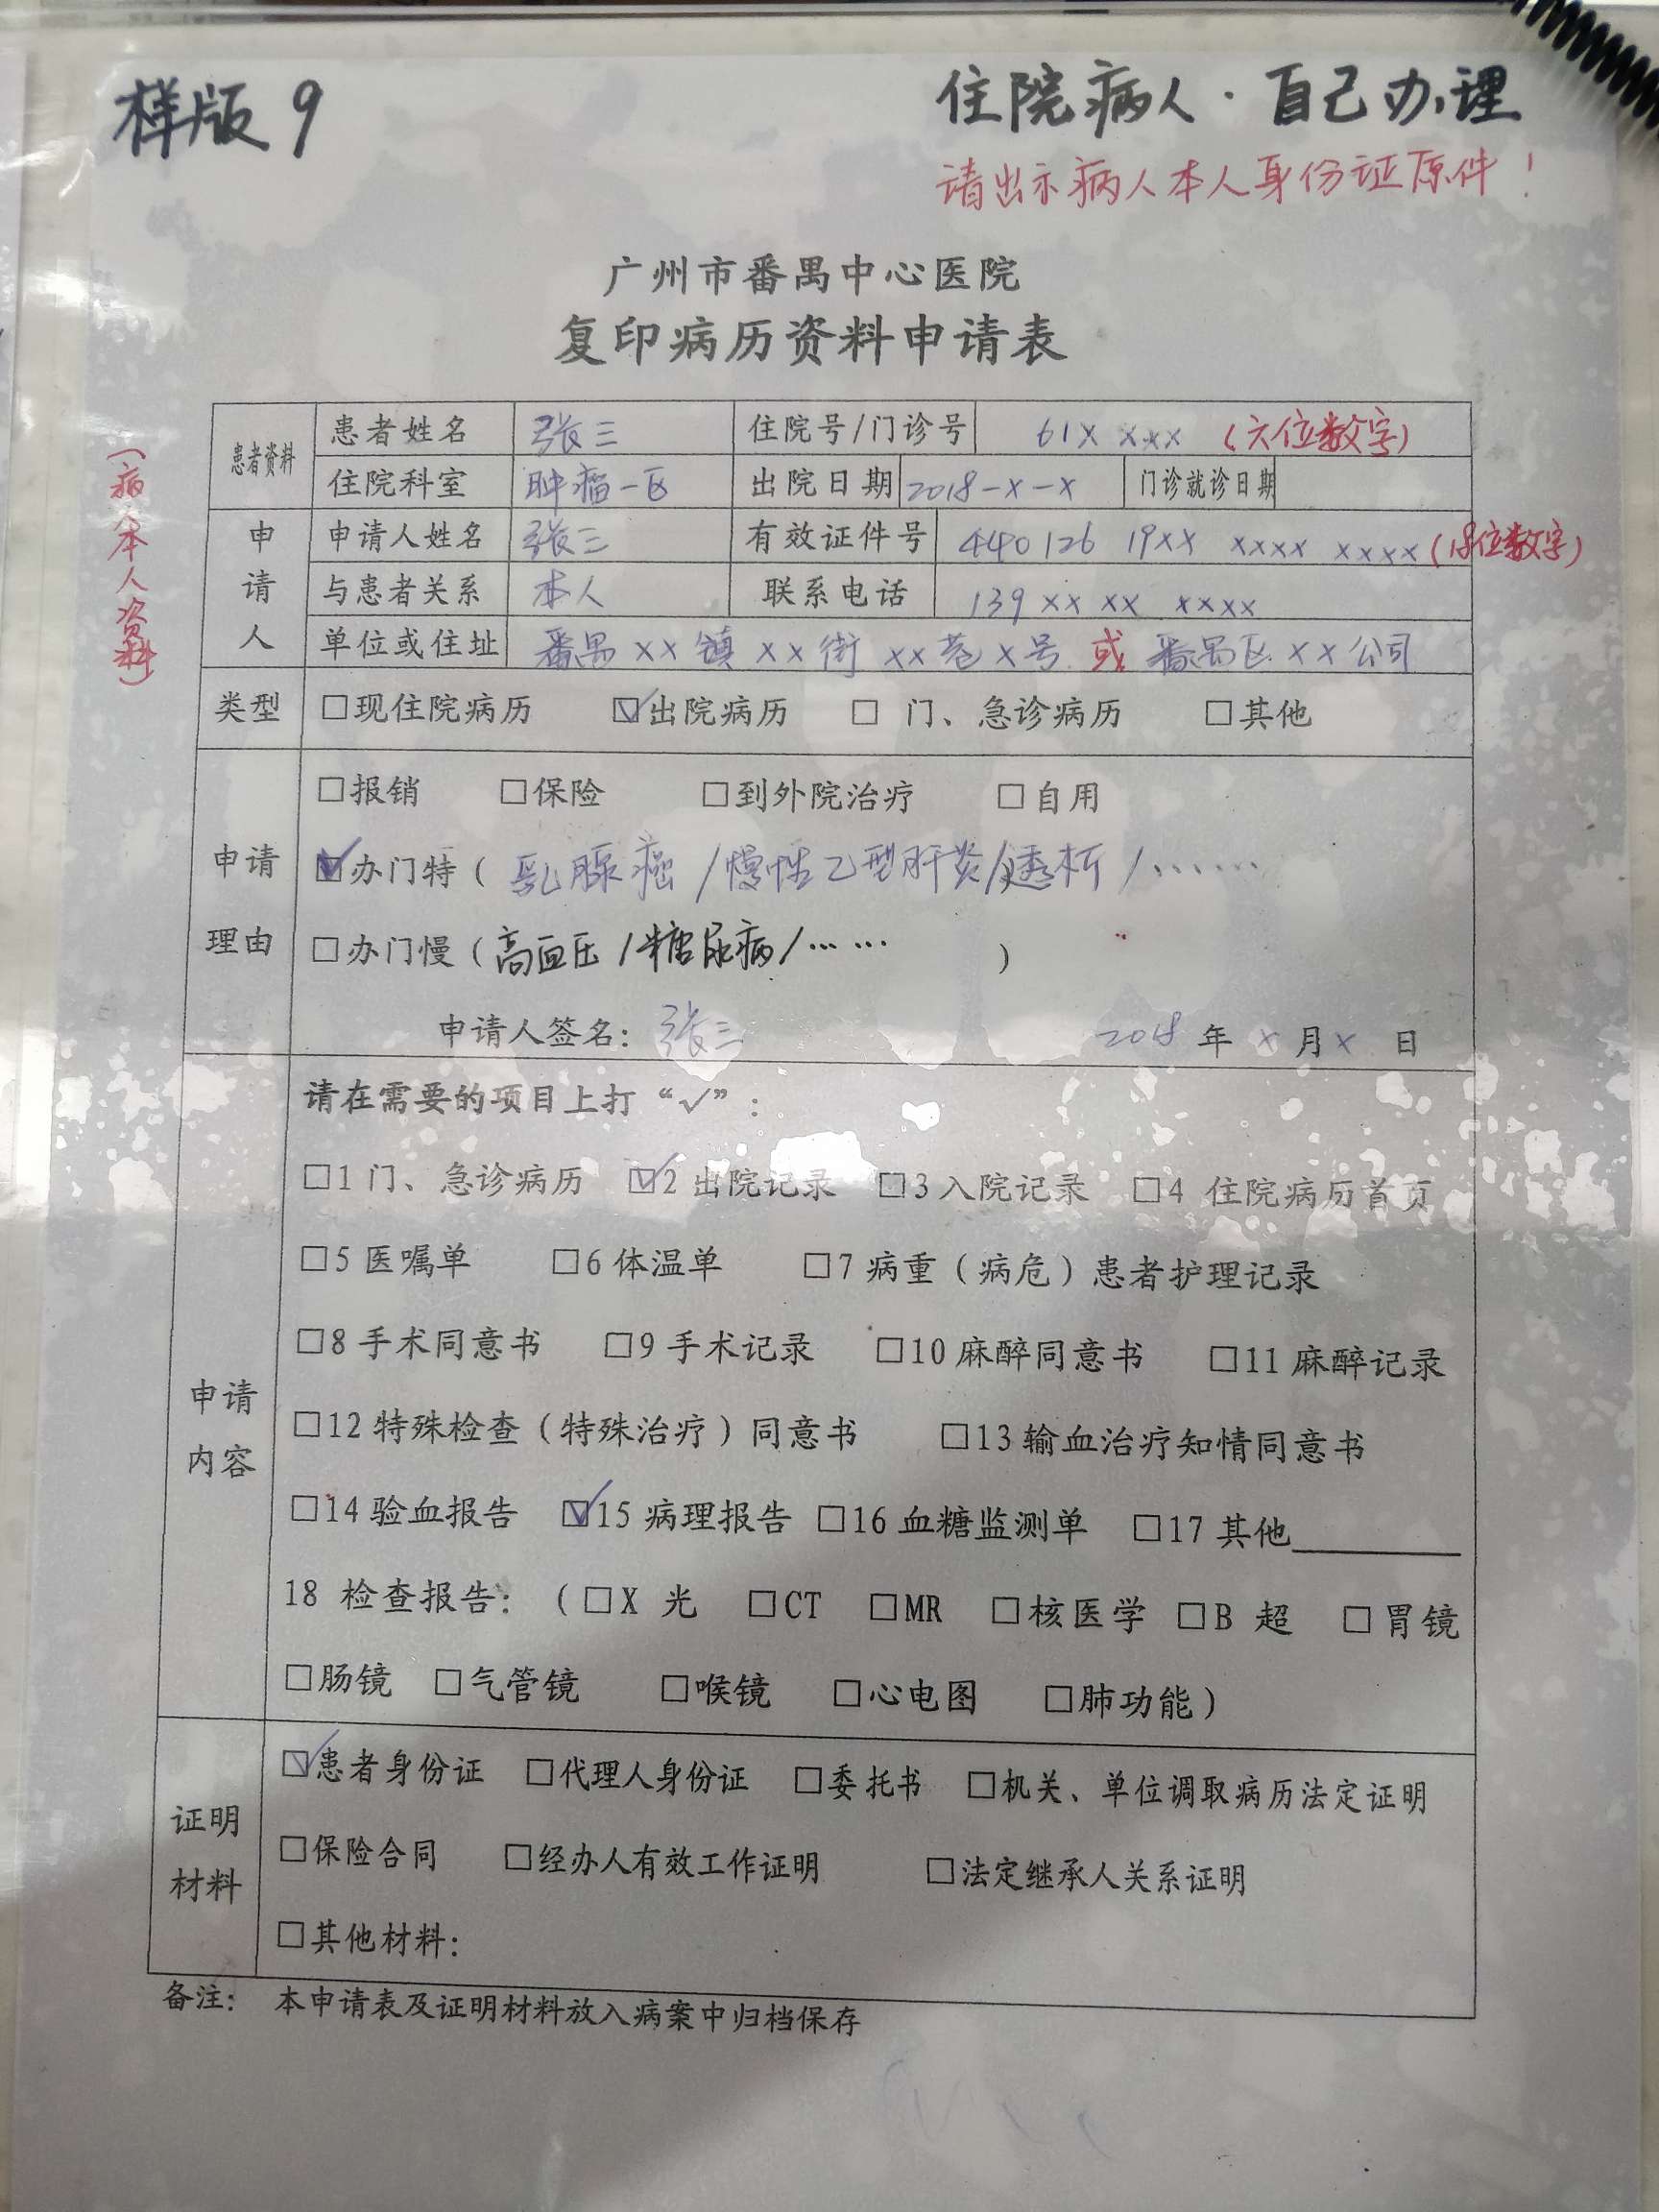 样版9
住院病人·自己办理
请出示病人本人身份证原件!
广州市番禺中心医院
复印病历资料申请表
(病人本人资料)
患者资料 患者姓名 张三 住院号/门诊号 61X XXX (六位数字)
住院科室 肿瘤一区 出院日期 2018-X-X 门诊就诊日期
申请人 申请人姓名 张三 有效证件号 440126 19XX XXXX XXXX (18位数字)
与患者关系 本人 联系电话 139 XX XX XXXX
单位或住址 番禺XX镇XX街XX巷X号 或 番禺区XX公司
类型 □现住院病历 ☑出院病历 □ 门、急诊病历 □其他
申请理由 □报销 □保险 □到外院治疗 □自用
☑办门特(乳腺癌/慢性乙型肝炎/透析/……
□办门慢(高血压/糖尿病/…… )
申请人签名: 张三 2018 年 X 月 X 日
申请内容 请在需要的项目上打“√”:
□1 门、急诊病历 ☑2 出院记录 □3 入院记录 □4 住院病历首页
□5 医嘱单 □6 体温单 □7 病重(病危)患者护理记录
□8 手术同意书 □9 手术记录 □10 麻醉同意书 □11 麻醉记录
□12 特殊检查(特殊治疗)同意书 □13 输血治疗知情同意书
□14 验血报告 ☑15 病理报告 □16 血糖监测单 □17 其他
18 检查报告:(□X 光 □CT □MR □核医学 □B 超 □胃镜
□肠镜 □气管镜 □喉镜 □心电图 □肺功能)
证明材料 ☑患者身份证 □代理人身份证 □委托书 □机关、单位调取病历法定证明
□保险合同 □经办人有效工作证明 □法定继承人关系证明
□其他材料:
备注: 本申请表及证明材料放入病案中归档保存